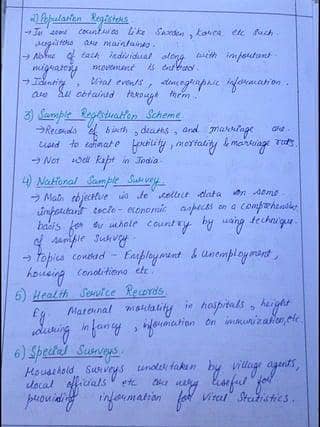 2) Population Registers
→ In some countries like Sweden, Korea etc such
registers are maintained.
→ Name of each individual along with important
migratory movement is entered.
→ Identity, Vital events, demographic information
are all obtained through them.
3) Sample Registration Scheme
→ Records of birth, deaths, and marriage are
used to estimate fertility, mortality & marriage rates.
→ Not well kept in India.
4) National Sample Survey
→ Main objective is to collect data on some
important socio-economic aspects on a comprehensive
basis for the whole country by using technique
of sample survey.
→ Topics covered - Employment & Unemployment,
housing conditions etc.
5) Health Service Records.
Eg. Maternal mortality in hospitals, height
during infancy, information on immunization, etc.
6) Special Surveys.
Household surveys undertaken by village agents,
local officials etc are very useful for
providing information for Vital Statistics.